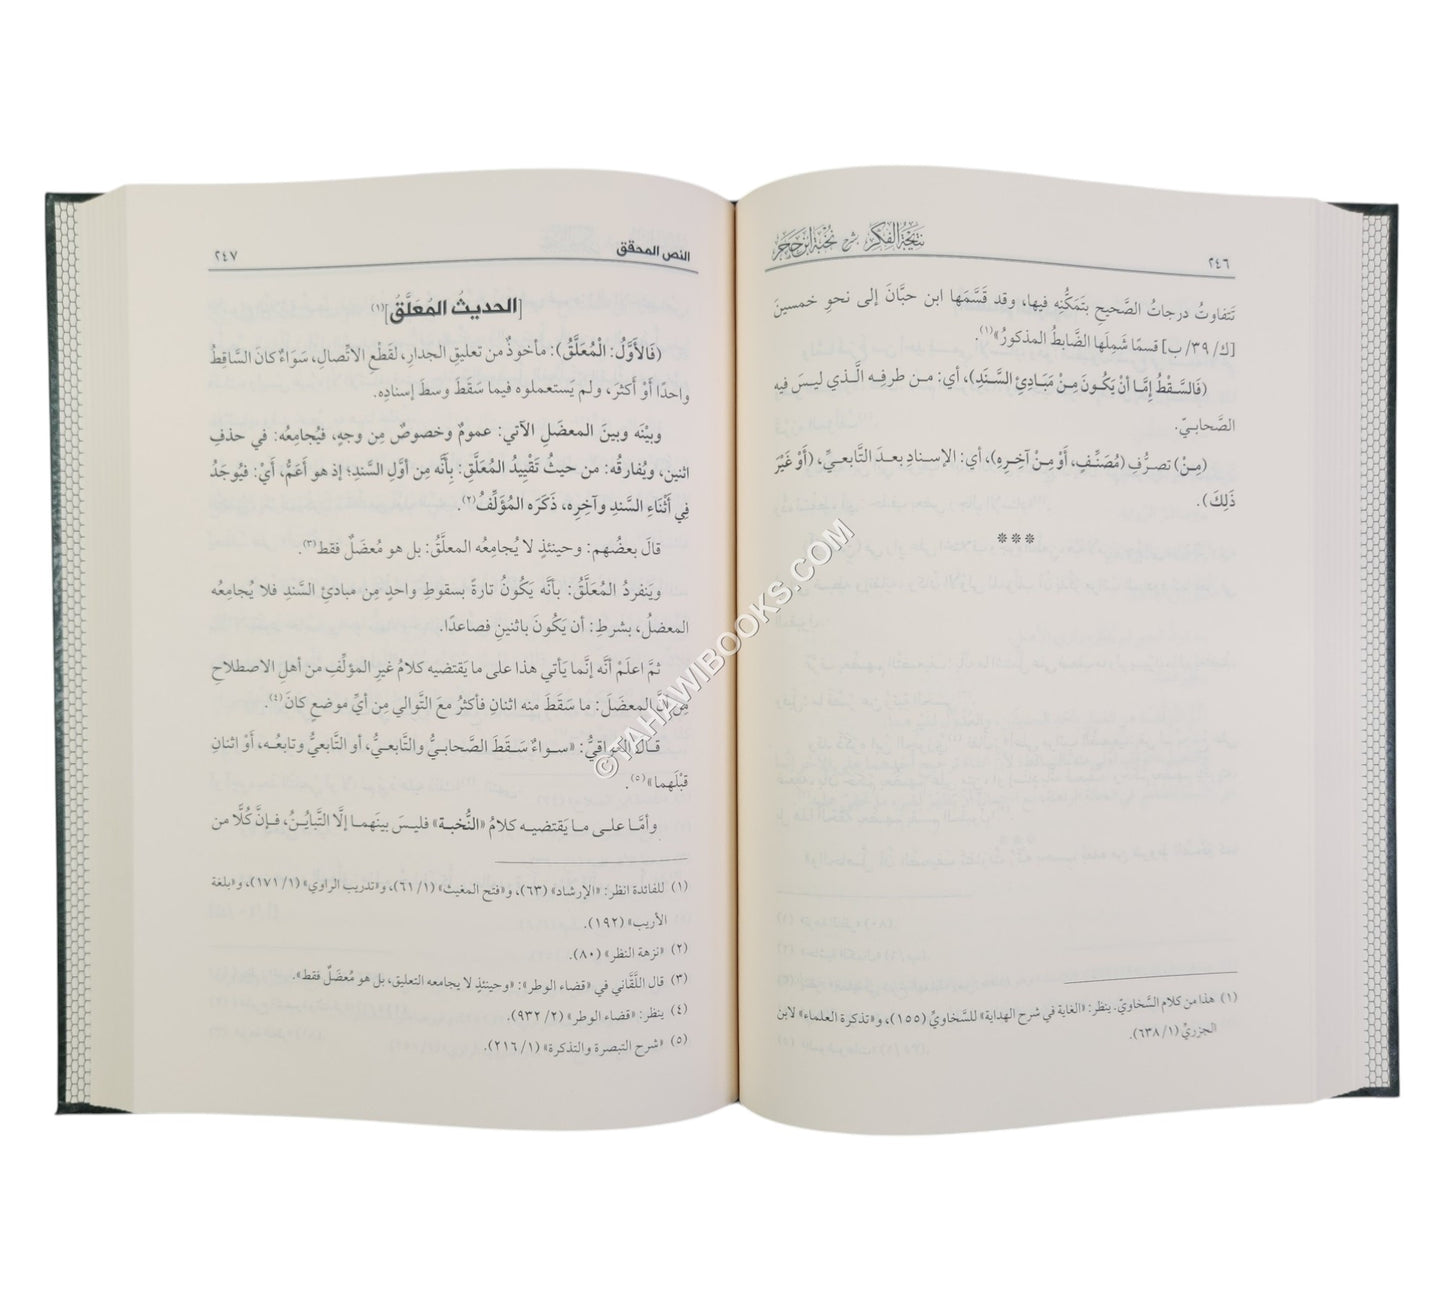 ٢٤٦
نتيجة الفكر شرح نخبة ابن حجر
تَتفاوتُ درجاتُ الصَّحيحِ بتَمكُّنِه فيها، وقد قَسَّمَها ابن حبَّانَ إلى نحوِ خمسينَ
[ك/ ٣٩/ ب] قسمًا شَمِلَها الضَّابطُ المذكورُ»(١).
(فَالسَّقْطُ إِمَّا أَنْ يَكُونَ مِنْ مَبَادِئِ السَّنَدِ)، أي: من طرفِه الَّذي ليسَ فيه
الصَّحابيّ.
(مِنْ) تصرُّفِ (مُصَنِّفٍ، أَوْ مِنْ آخِرِهِ)، أي: الإسنادِ بعدَ التَّابعيِّ، (أَوْ غَيْرَ
ذَلِكَ).
***
(١) هذا من كلام السَّخاويّ. ينظر: «الغاية في شرح الهداية» للسَّخاويِّ (١٥٥)، و«تذكرة العلماء» لابن
الجزريِّ (١/ ٦٣٨).
النص المحقق
٢٤٧
[الحديثُ المُعَلَّقُ](١)
(فَالأَوَّلُ: الْمُعَلَّقُ): مأخوذٌ من تعليقِ الجدارِ، لقَطْعِ الاتِّصالِ، سَوَاءٌ كانَ السَّاقِطُ
واحدًا أَوْ أكثرَ، ولم يَستعملوه فيما سَقَطَ وسطَ إسنادِه.
وبيْنَه وبينَ المعضَلِ الآتي: عمومٌ وخصوصٌ مِن وجهٍ، فيُجامِعُه: في حذفِ
اثنينِ، ويُفارقُه: من حيثُ تَقْيِيدُ المُعَلَّقِ: بِأَنَّه مِن أوَّلِ السَّندِ؛ إذ هو أَعَمُّ، أَيْ: فيُوجَدُ
فِي أَثْنَاءِ السَّندِ وآخِرِه، ذَكَرَه المُؤَلِّفُ(٢).
قالَ بعضُهم: وحينئذٍ لا يُجامِعُه المعلَّقُ: بل هو مُعضَلٌ فقط(٣).
ويَنفردُ المُعَلَّقُ: بأنَّه يَكُونُ تارةً بسقوطِ واحدٍ مِن مبادئِ السَّندِ فلا يُجامِعُه
المعضلُ، بشرطِ: أن يَكُونَ باثنينِ فصاعدًا.
ثمَّ اعلَمْ أنَّه إنَّما يَأتي هذا على ما يَقتضيه كلامُ غيرِ المؤلِّفِ من أهلِ الاصطلاحِ
مِن أنَّ المعضَلَ: ما سَقَطَ منه اثنانِ فأكثرُ معَ التَّوالي مِن أيِّ موضعٍ كانَ(٤).
قالَ العراقيُّ: «سواءٌ سَقَطَ الصَّحابيُّ والتَّابعيُّ، أو التَّابعيُّ وتابعُه، أَوْ اثنانِ
قبْلَهما»(٥).
وأمَّا على ما يَقتضيه كلامُ «النُّخبة» فليسَ بينَهما إلَّا التَّبايُنُ، فإنَّ كُلًّا من
(١) للفائدة انظر: «الإرشاد» (٦٣)، و«فتح المغيث» (١/ ٦١)، و«تدريب الراوي» (١/ ١٧١)، و«بلغة
الأريب» (١٩٢).
(٢) «نزهة النظر» (٨٠).
(٣) قال اللَّقَّاني في «قضاء الوطر»: «وحينئذٍ لا يجامعه التعليق، بل هو مُعضَلٌ فقط».
(٤) ينظر: «قضاء الوطر» (٢/ ٩٣٢).
(٥) «شرح التبصرة والتذكرة» (١/ ٢١٦).
©TAHAWIBOOKS.COM